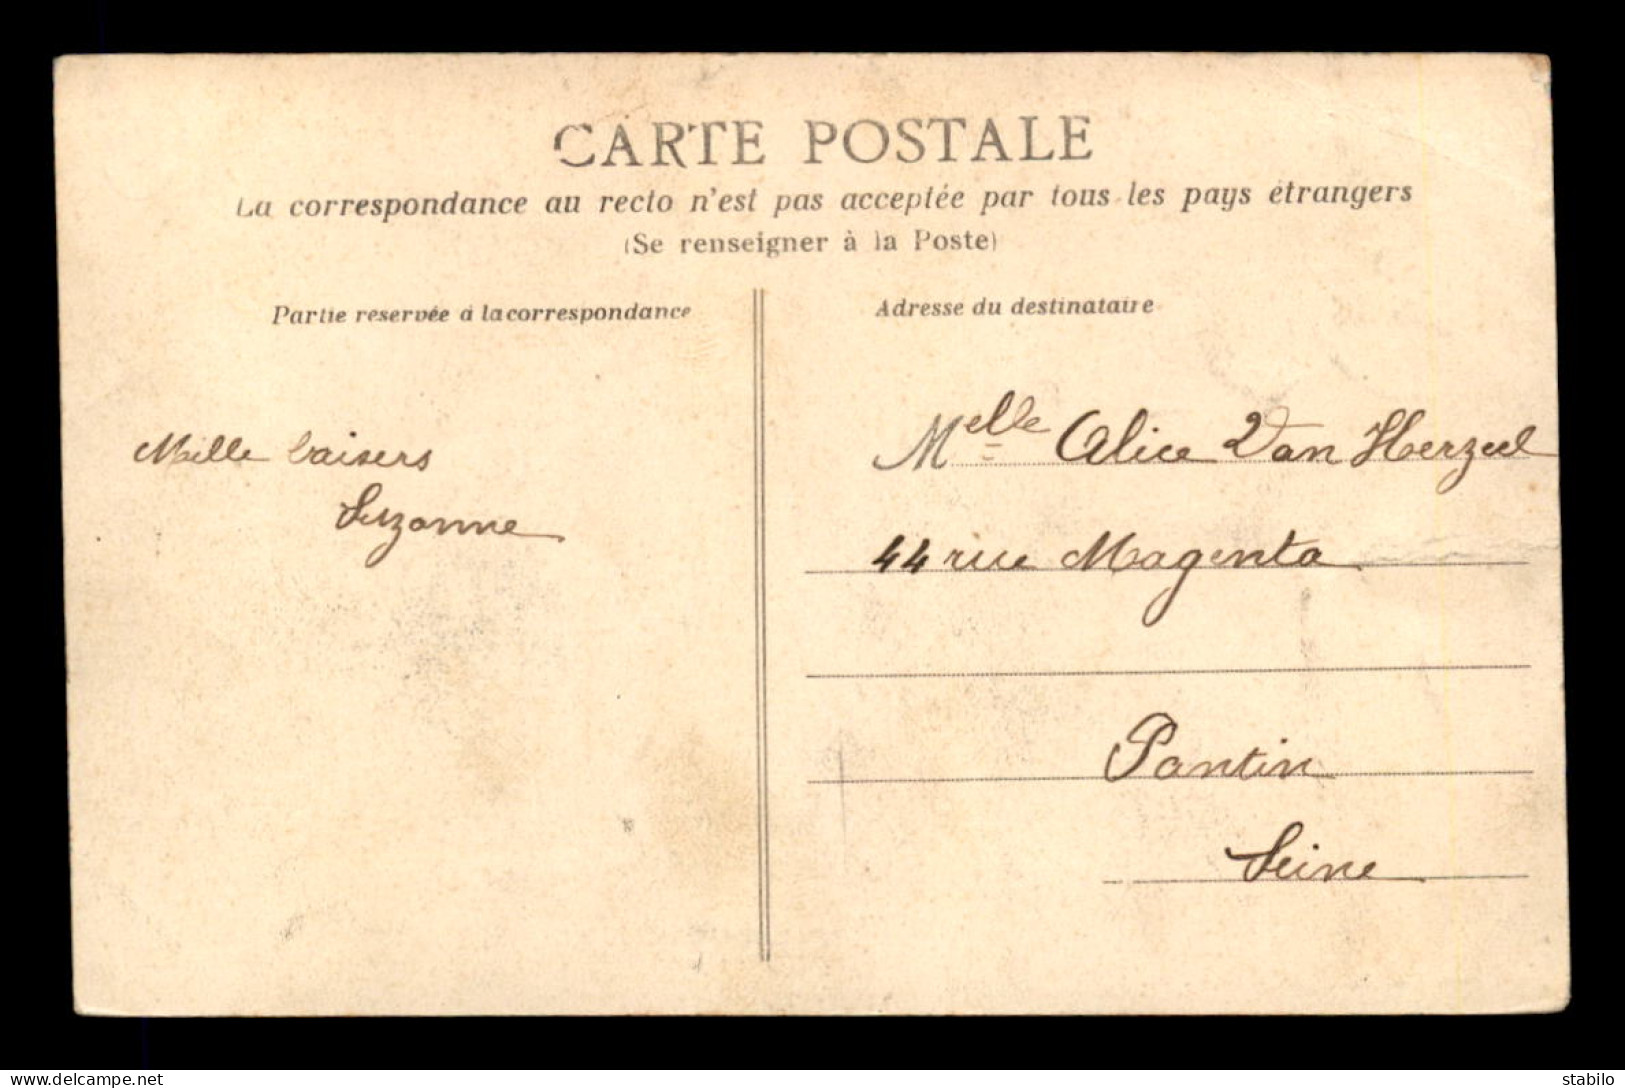 CARTE POSTALE
La correspondance au recto n'est pas acceptée par tous les pays étrangers
(Se renseigner à la Poste)
Partie reservée à la correspondance
Adresse du destinataire
Mille baisers
Suzanne
Melle Alice Van Herzeel
44 rue Magenta
Pantin
Seine
www.delcampe.net
stabilo